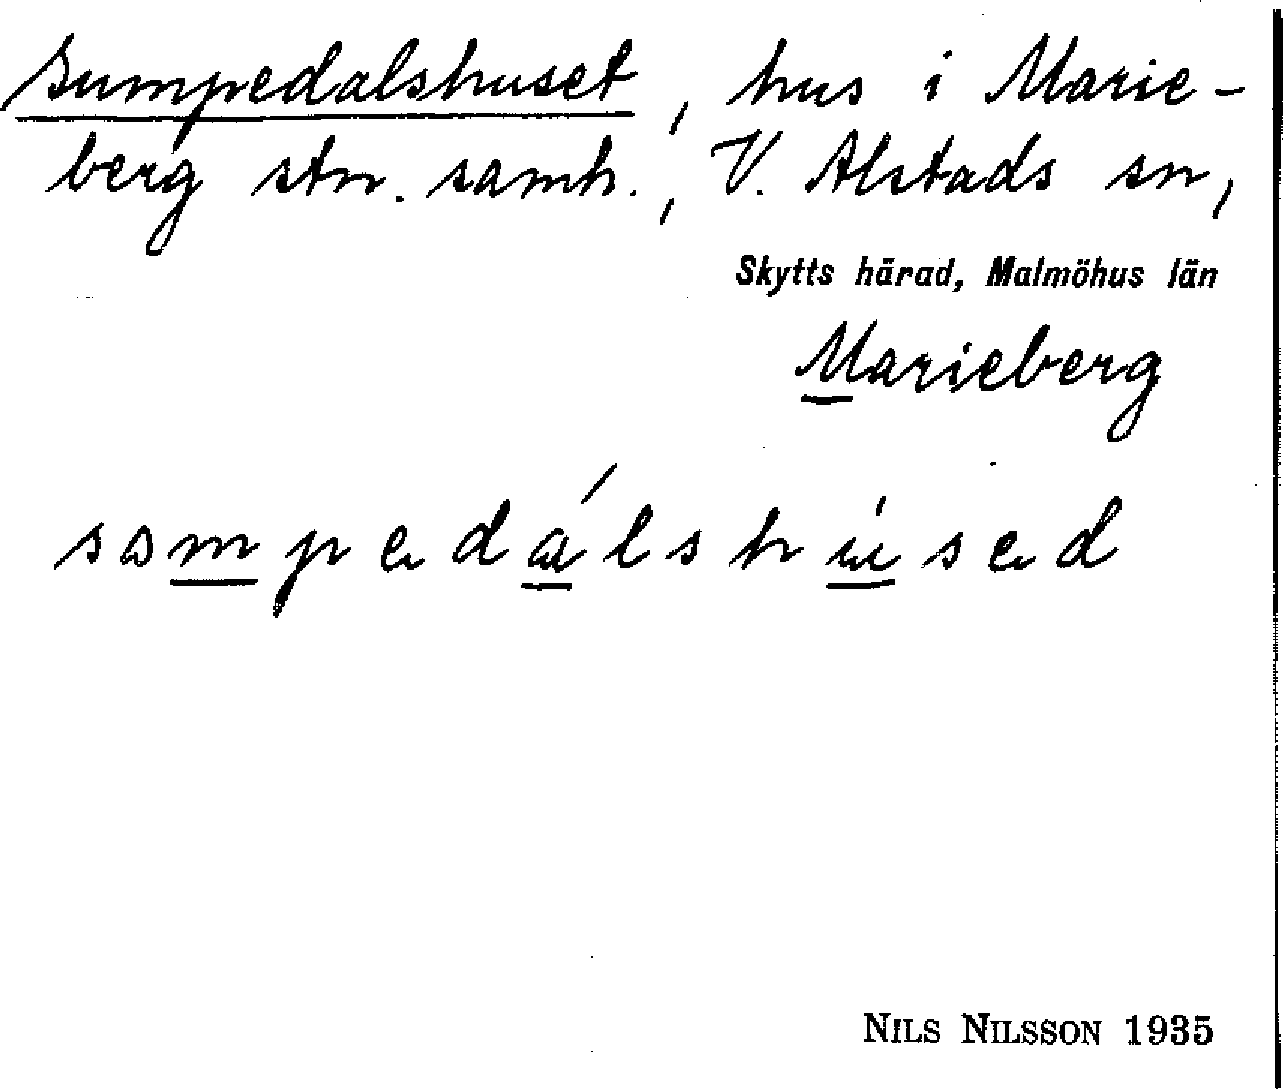 Sumpedalshuset, hus i Marie-
berg stn. samh., V. Alstads sn,
Skytts härad, Malmöhus län
Marieberg
sampedálshúsed
NILS NILSSON 1935